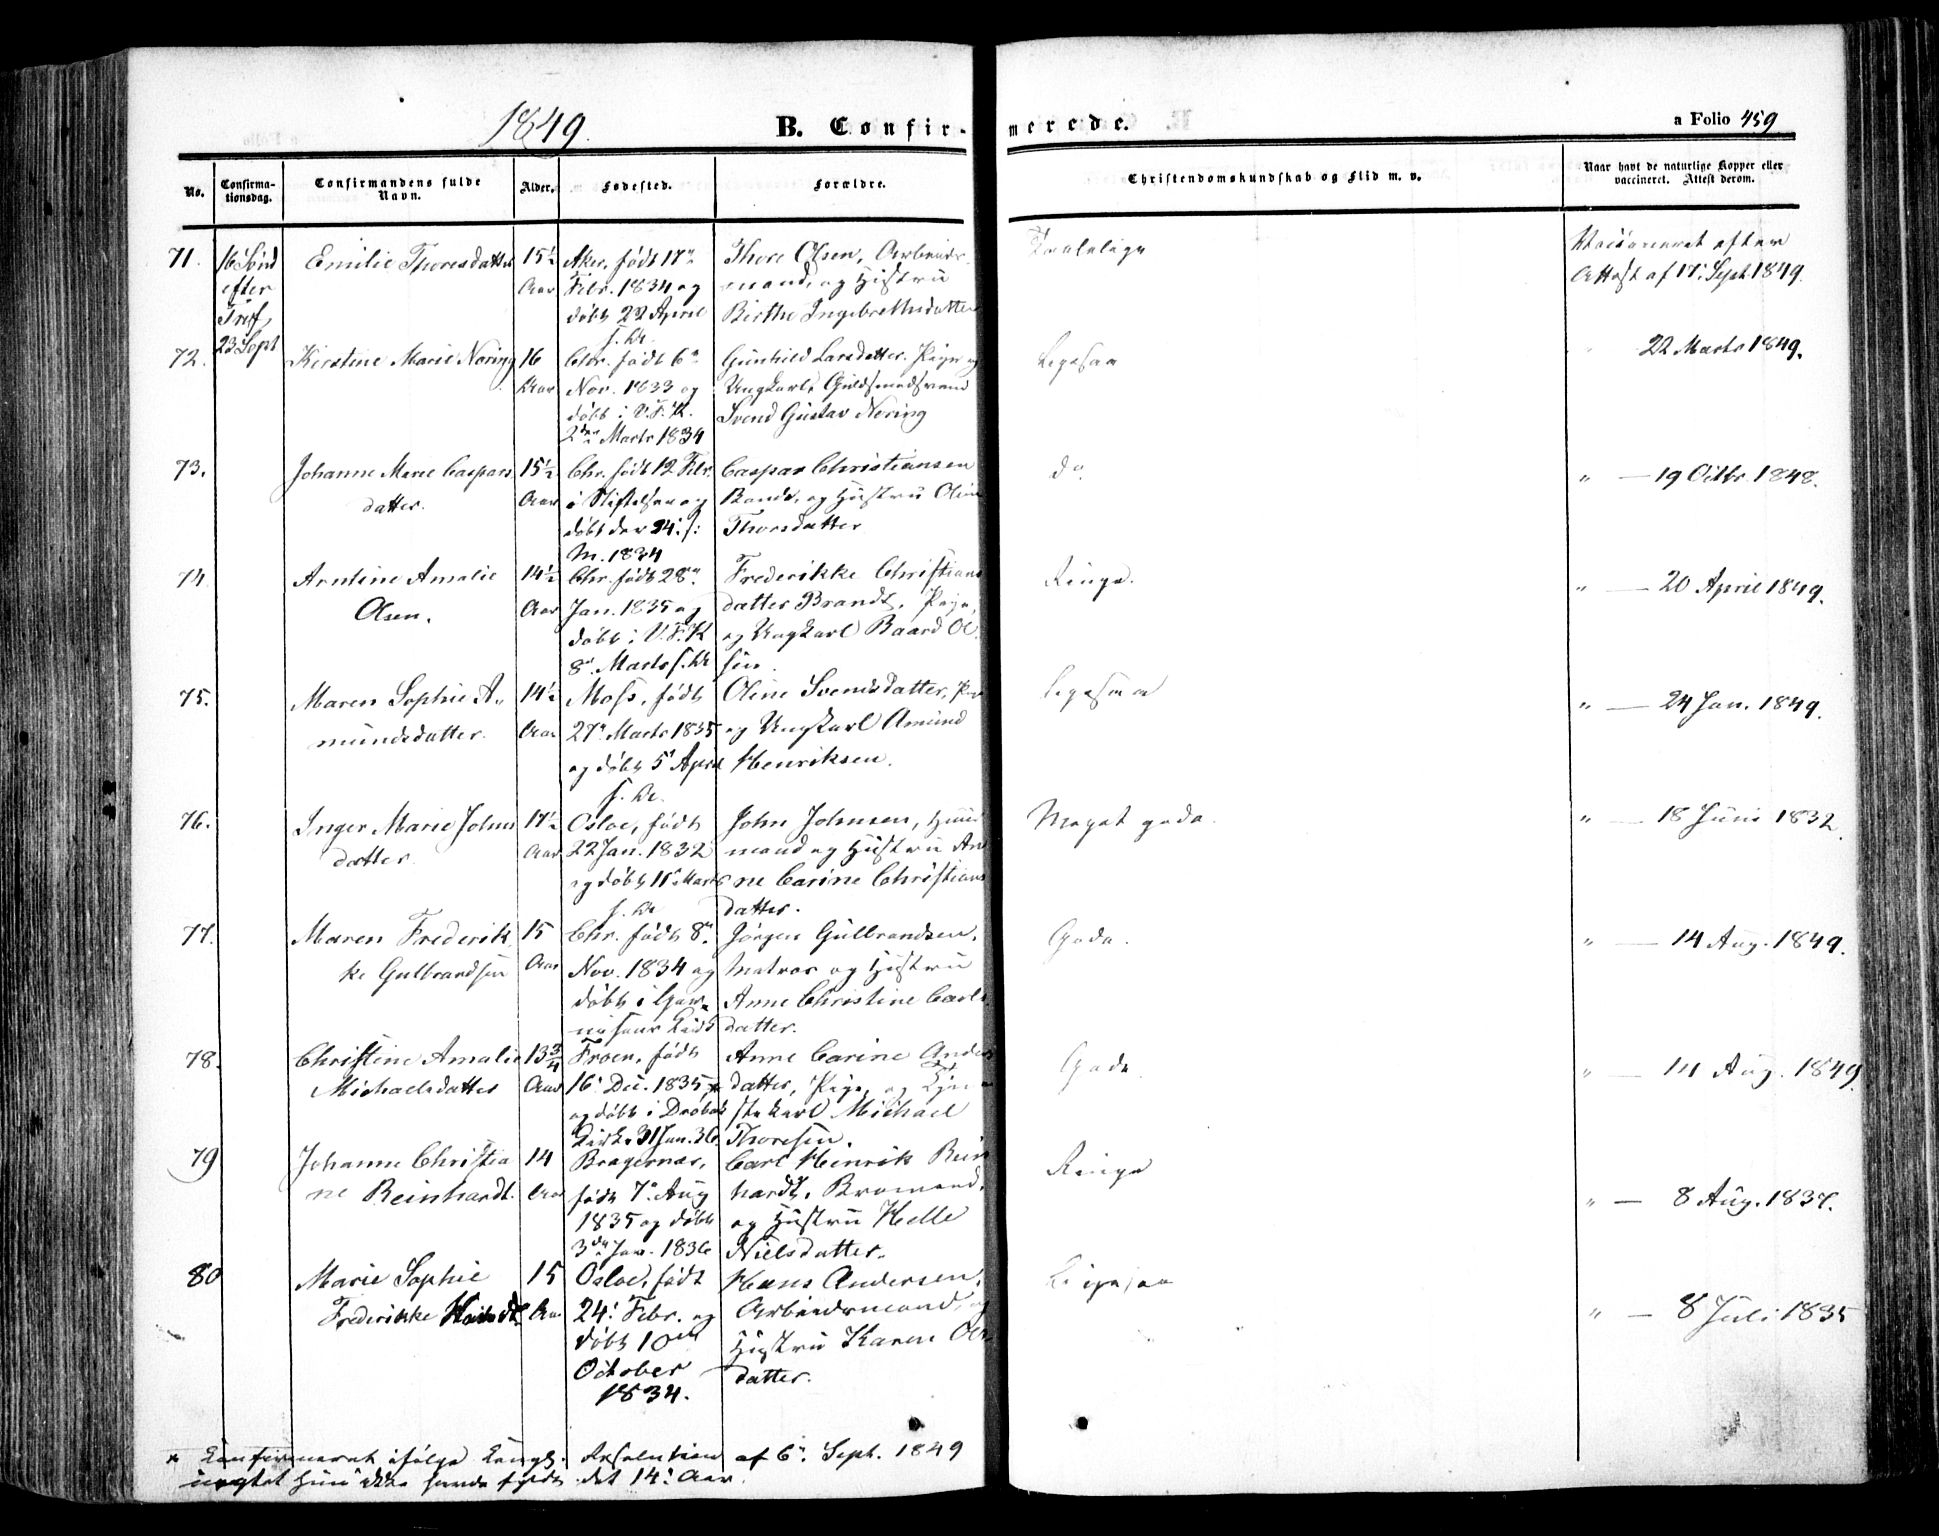 1849.
B. Confir-
merede.
a Folio 459
No.
Confirma-
tionsdag.
Confirmandens fulde
Navn.
Alder.
Fødested.
Forældre.
Christendomskundskab og Flid m. v.
Naar havt de naturlige Kopper eller
vaccineret. Attest derom.
71.
16 Sønd
efter
Tref,
23 Sept
Emilie Thoresdatter
15½
Aar
Aker, født 17de
Febr. 1834 og
døbt 22 April
s. Ar.
Thore Olsen, Arbeids-
mand, og Hustru
Birthe Ingebrethsdatter
Taalelige
Vaccineret efter
Attest af 17. Sept 1849.
72.
Kirstine Marie Nøring
16
Aar
Chr. født 6te
Nov. 1833 og
døbt i V. F. K.
2den Marts 1834
Gunhild Larsdatter, Pige og
Ungkarl, Guldsmedsvend
Svend Gustav Nøring
Ligesaa
22 Marts 1849.
73.
Johanne Marie Caspers
datter.
15½
Aar
Chr. født 12 Febr.
i Stiftelsen og
døbt der 24. s:
M. 1834
Caspar Christiansen
Bonde, og Hustru Oline
Thorsdatter
do
" — 19 Octbr. 1848.
74.
Arntine Amalie
Olsen.
14½
Aar
Chr. født 28de
Jan. 1835 og
døbt i V. F. K
8de Marts s. Ar
Frederikke Christians
datter Brandt, Pige,
og Ungkarl Baard Ol-
sen.
Ringe.
" — 20 April 1849.
75.
Maren Sophie A-
mundsdatter.
14½
Aar
Moss, født
27de Marts 1835
og døbt 5 April
s. Ar.
Oline Svendsdatter, Pige
og Ungkarl Amund
Henriksen.
Ligesaa
" — 24 Jan. 1849.
76.
Inger Marie Johns
datter.
17½
Aar
Osloe, født
22 Jan. 1832
og døbt 11te Marts
s. Ar
John Johnsen, Huus
mand og Hustru An
ne Carine Christians
datter.
Meget gode.
" — 18 Juni 1832.
77.
Maren Frederik
ke Gulbrandsen
15
Aar
Chr. født 8de
Nov. 1834 og
døbt i Gar-
nisons Kirk
Jørgen Gulbrandsen,
Matros og Hustru
Anne Christine Carls
datter.
Gode.
" — 14 Aug. 1849.
78.
Christine Amalie
Michaelsdatter
13¾
Aar
Froen, født
16. Dec. 1835, *
og døbt i Drøbak
Kirke 31 Jan. 36.
Anne Carine Anders
datter, Pige, og Tjene
ste karl Michael
Thoresen.
Gode.
" — 14 Aug. 1849.
79
Johanne Christia
ne Reinhardt.
14
Aar
Bragernæs,
født 7de Aug
1835 og døbt
3de Jan. 1836
Carl Heinrik Rein
hardt, Bromand,
og Hustru Helle
Nielsdatter.
Ringe
" — 8 Aug. 1837.
80
Marie Sophie
Frederikke
15
Aar
Osloe, født
24. Febr. og
døbt 10de
October
1834.
Hans Andersen,
Arbeidsmand, og
Hustru Karen Ols
datter.
Ligesaa
" — 8 Juli 1835
* Confirmeret ifølge Kongl. Resolution af 6te Sept. 1849
uagtet hun ikke havde fyldt det 14. Aar.